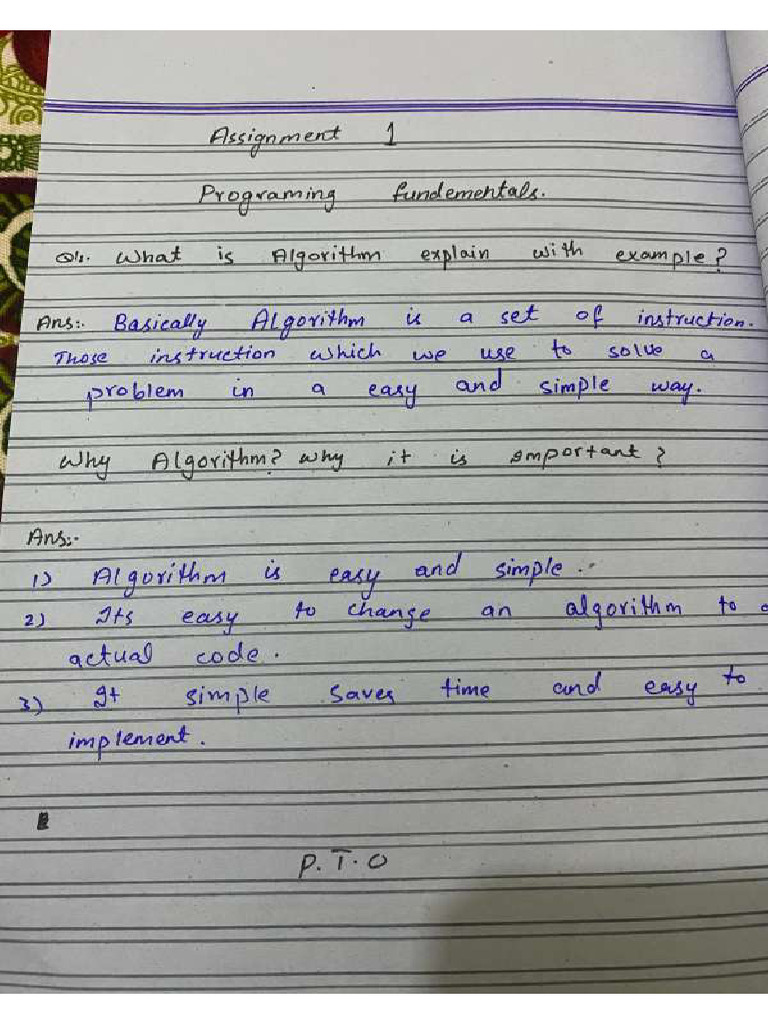 Assignment 1
Programing fundementals.
Q1:. What is Algorithm explain with example?
Ans:. Basically Algorithm is a set of instruction.
Those instruction which we use to solve a
problem in a easy and simple way.
Why Algorithm? why it is important?
Ans:-
1) Algorithm is easy and simple.
2) Its easy to change an algorithm to a
actual code.
3) It simple saves time and easy to
implement.
P.T.O